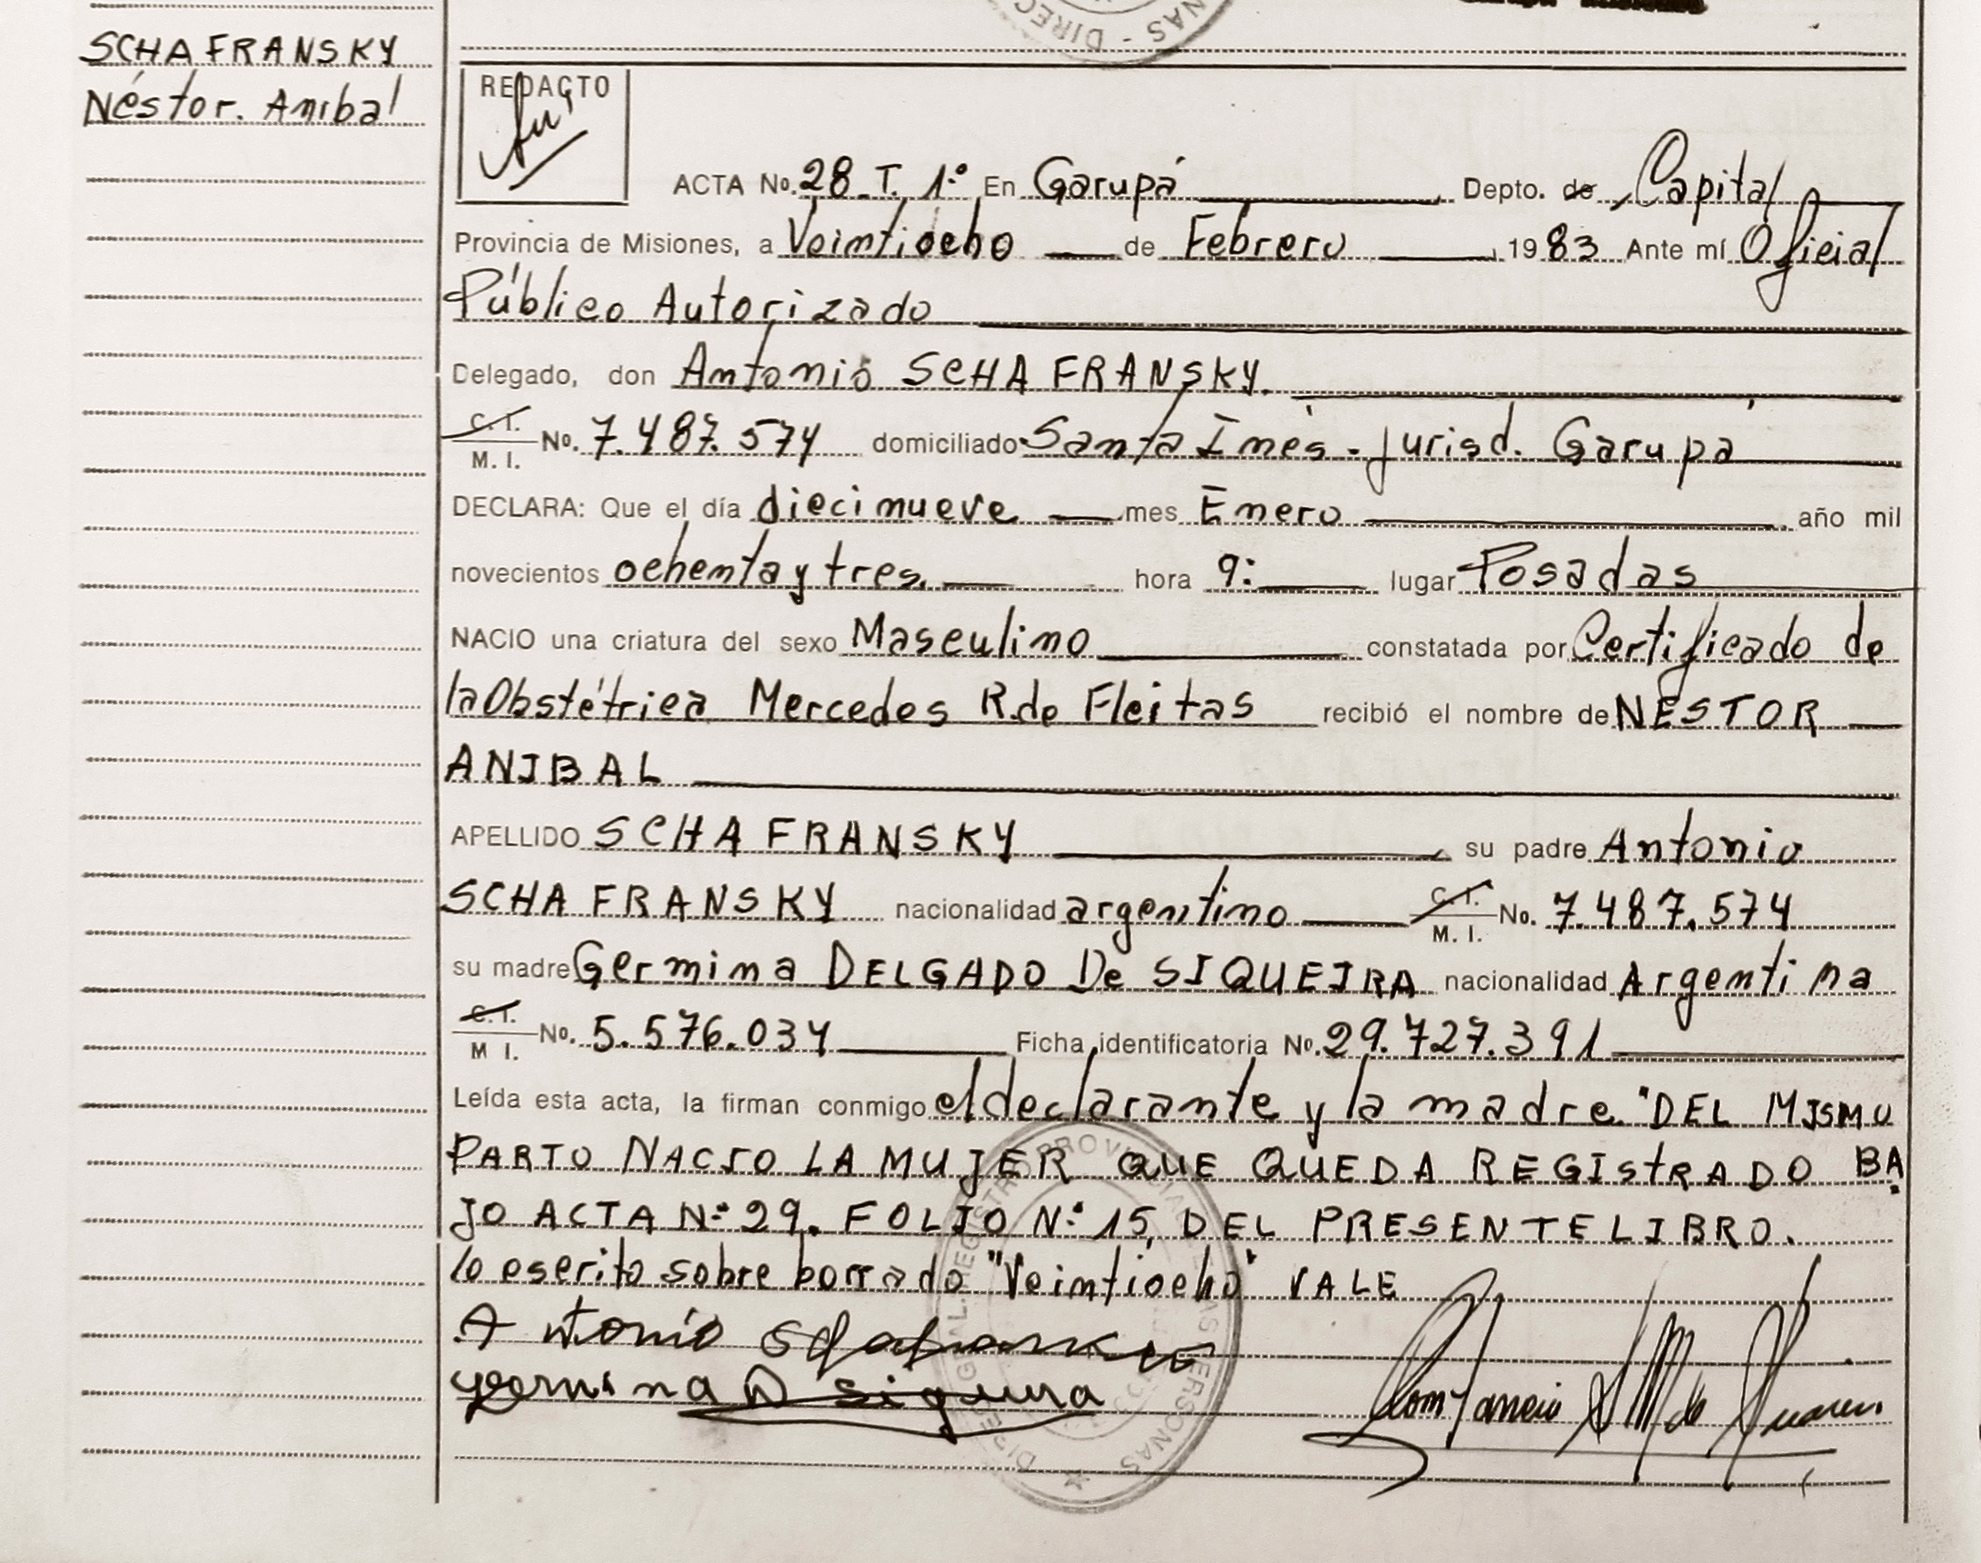 SCHAFRANSKY
Néstor. Anibal
NAS - DIREC
REDACTO
ACTA No. 28 T. 1º En Garupá Depto. de Capital
Provincia de Misiones, a Veintiocho de Febrero 1983 Ante mí Oficial
Público Autorizado
Delegado, don Antonio SCHAFRANSKY.
C.I. M. I. No. 7.487.574 domiciliado Santa Inés - jurisd. Garupá
DECLARA: Que el día diecinueve mes Enero año mil
novecientos ochenta y tres. hora 9: lugar Posadas
NACIO una criatura del sexo Masculino constatada por Certificado de
la Obstétrica Mercedes R. de Fleitas recibió el nombre de NESTOR
ANIBAL
APELLIDO SCHAFRANSKY su padre Antonio
SCHAFRANSKY nacionalidad argentino C.I. M. I. No. 7.487.574
su madre Germina DELGADO De SIQUEIRA nacionalidad Argentina
C.I. M I. No. 5.576.034 Ficha identificatoria No. 29.727.391
Leída esta acta, la firman conmigo el declarante y la madre. "DEL MISMO
PARTO NACIO LA MUJER QUE QUEDA REGISTRADO BA
JO ACTA Nº 29. FOLIO Nº 15, DEL PRESENTE LIBRO.
lo escrito sobre borrado "Veintiocho" VALE
Antonio
Germina D siqueira